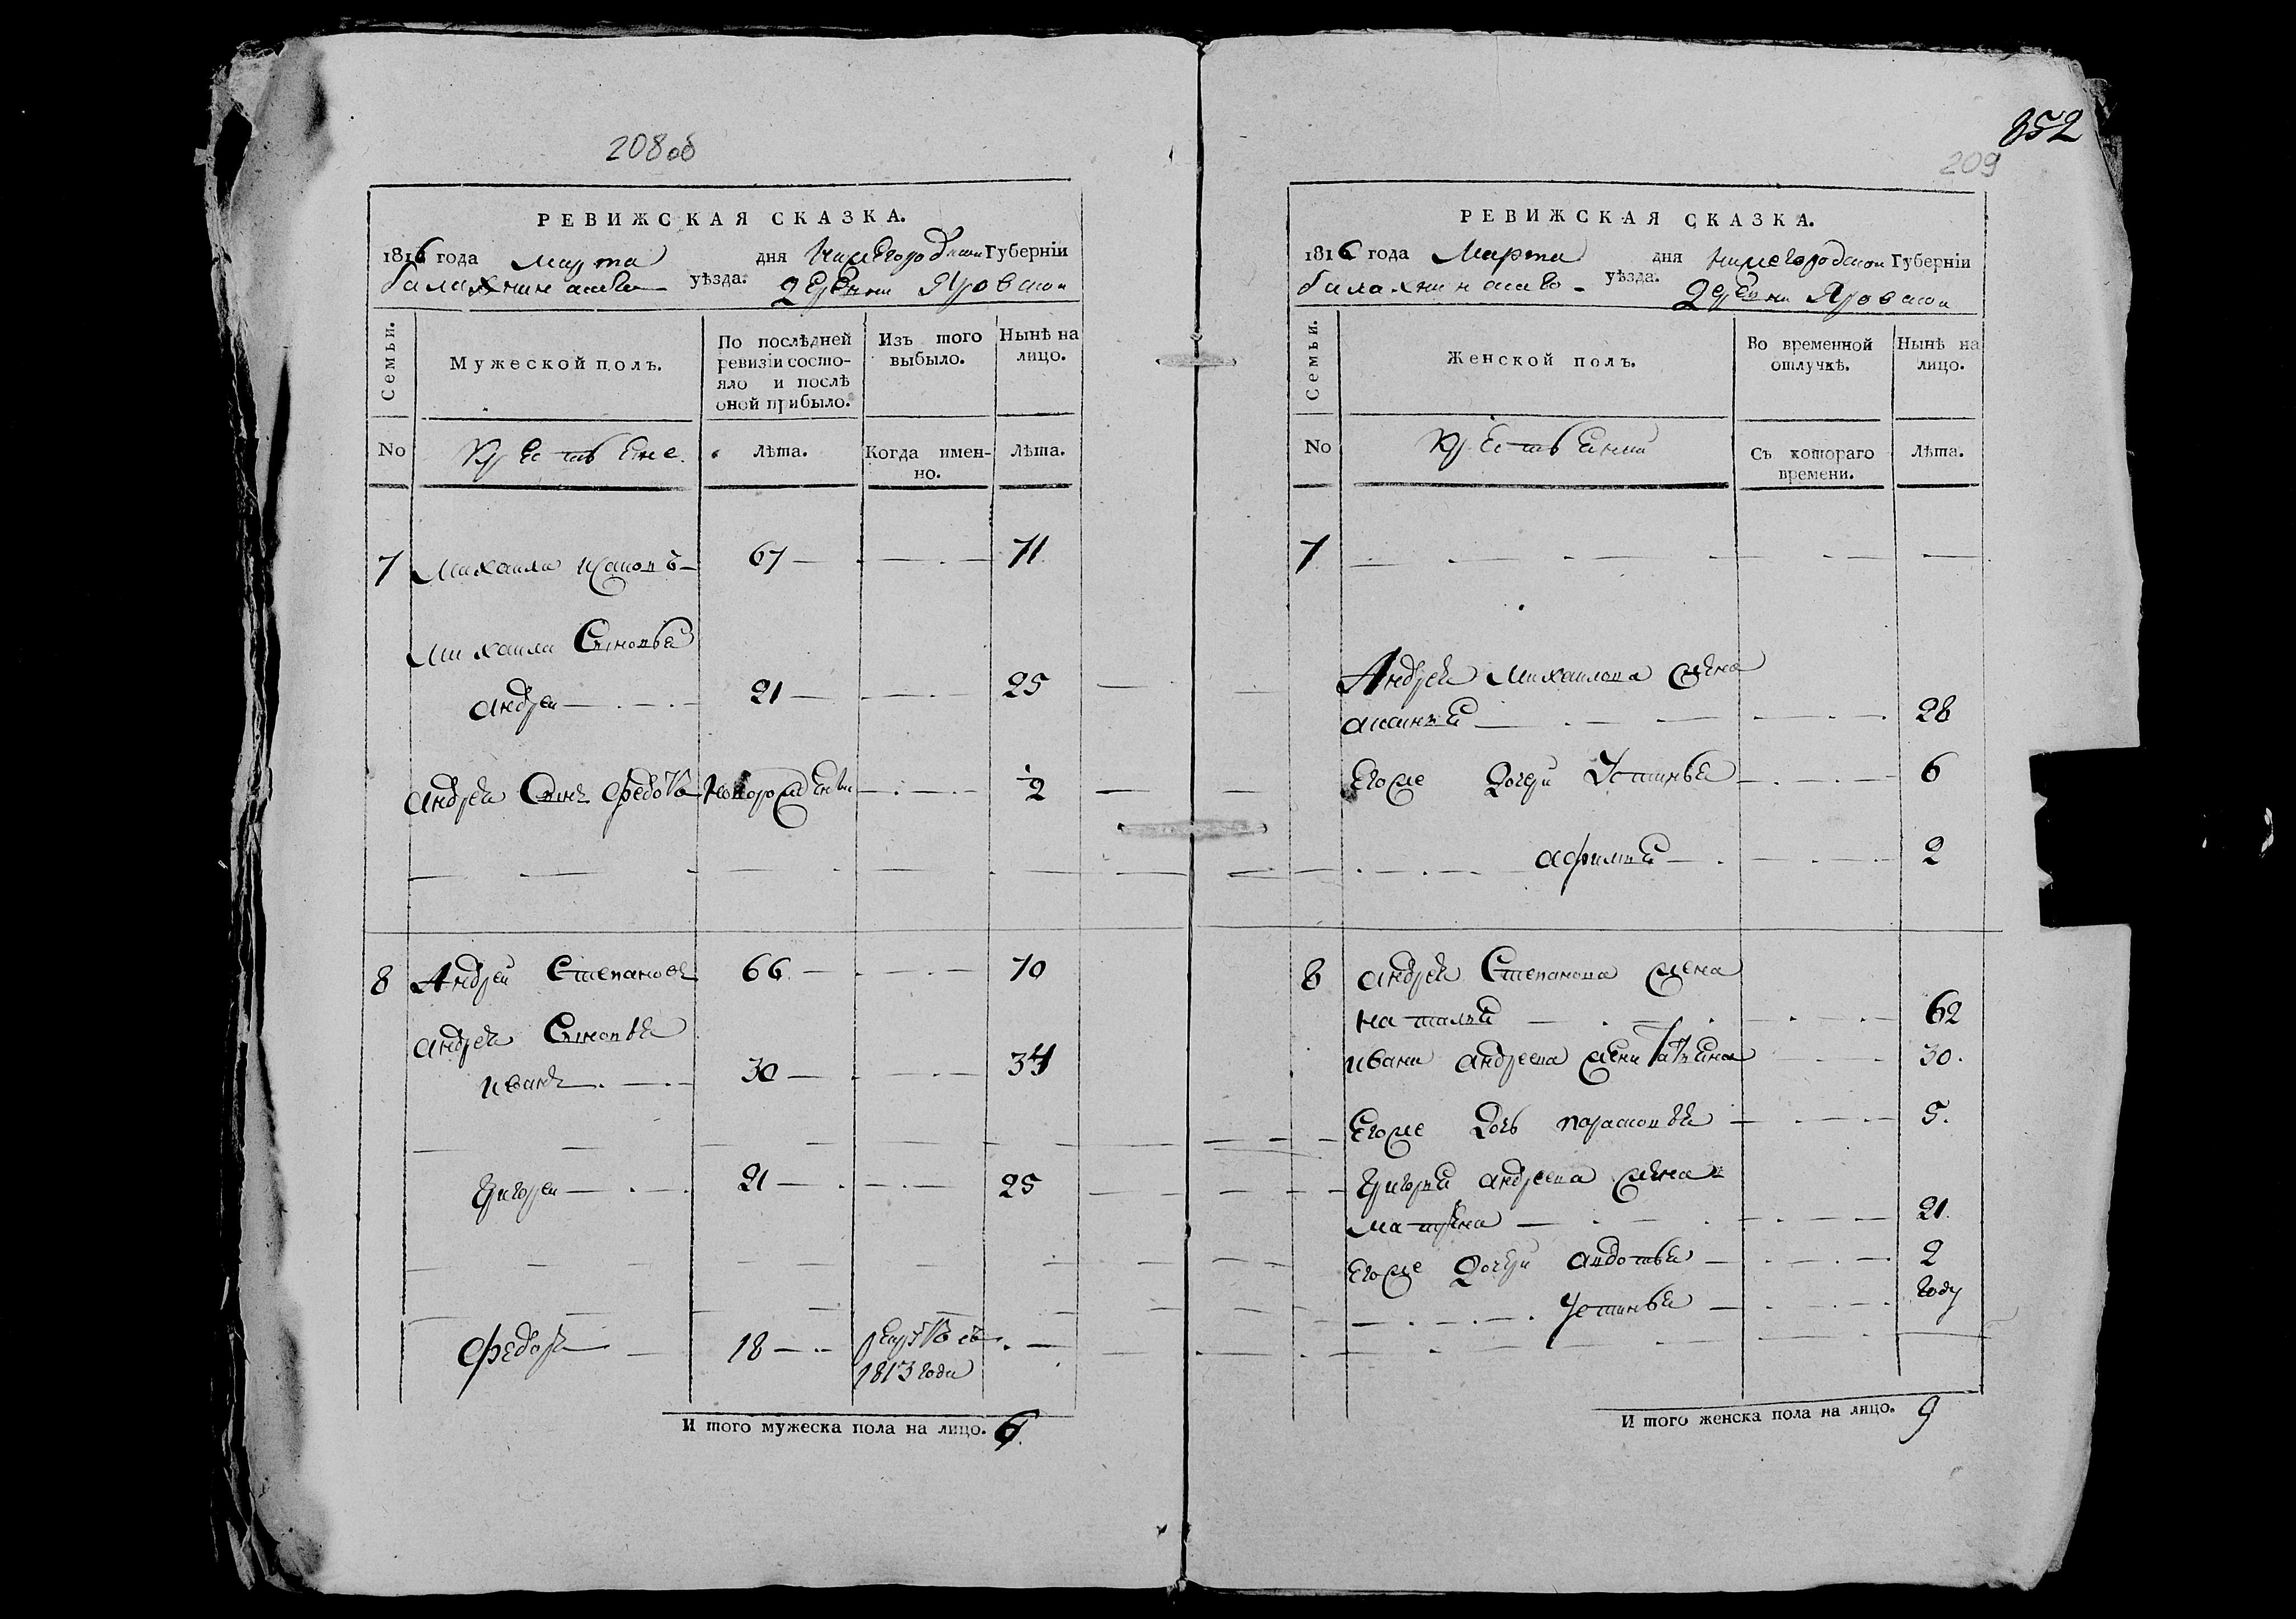 208об
РЕВИЖСКАЯ СКАЗКА.
1816 года марта дня нижегородской Губерніи
балахнинского уѣзда. деревни Яровской
Семьи.
Мужеской полъ.
По послѣдней ревизіи состояло и послѣ оной прибыло.
Изъ того выбыло.
Нынѣ на лицо.
No
крестьяне.
Лѣта.
Когда именно.
Лѣта.
7 Михаила 67 71
Михаила Сыновья
андреи 21 25
андрея Сынъ федоръ новорожденыи 2
8 Андреи Степановъ 66 70
андрея Сыновья
иванъ 30 34
григореи 21 25
федоръ 18 рекрутъ съ
1813 года
И того мужеска пола на лицо. 6.
352
209
РЕВИЖСКАЯ СКАЗКА.
1816 года Марта дня нижегородской Губерніи
балахнинскаго уѣзда. деревни Яровской
Семьи.
Женской полъ.
Во временной отлучкѣ.
Нынѣ на лицо.
No
Съ котораго времени.
Лѣта.
7
Андрея Михаилова жена
аксинья 28
Егоже дочери Устинья 6
афимья 2
8 андрея Степанова жена
наталья 62
ивана андреева жена Татьяна 30.
Егоже дочь парасковья 5.
григорья андреева жена
матрена 21.
Егоже дочери авдотья 2
Устинья году
И того женска пола на лицо. 9